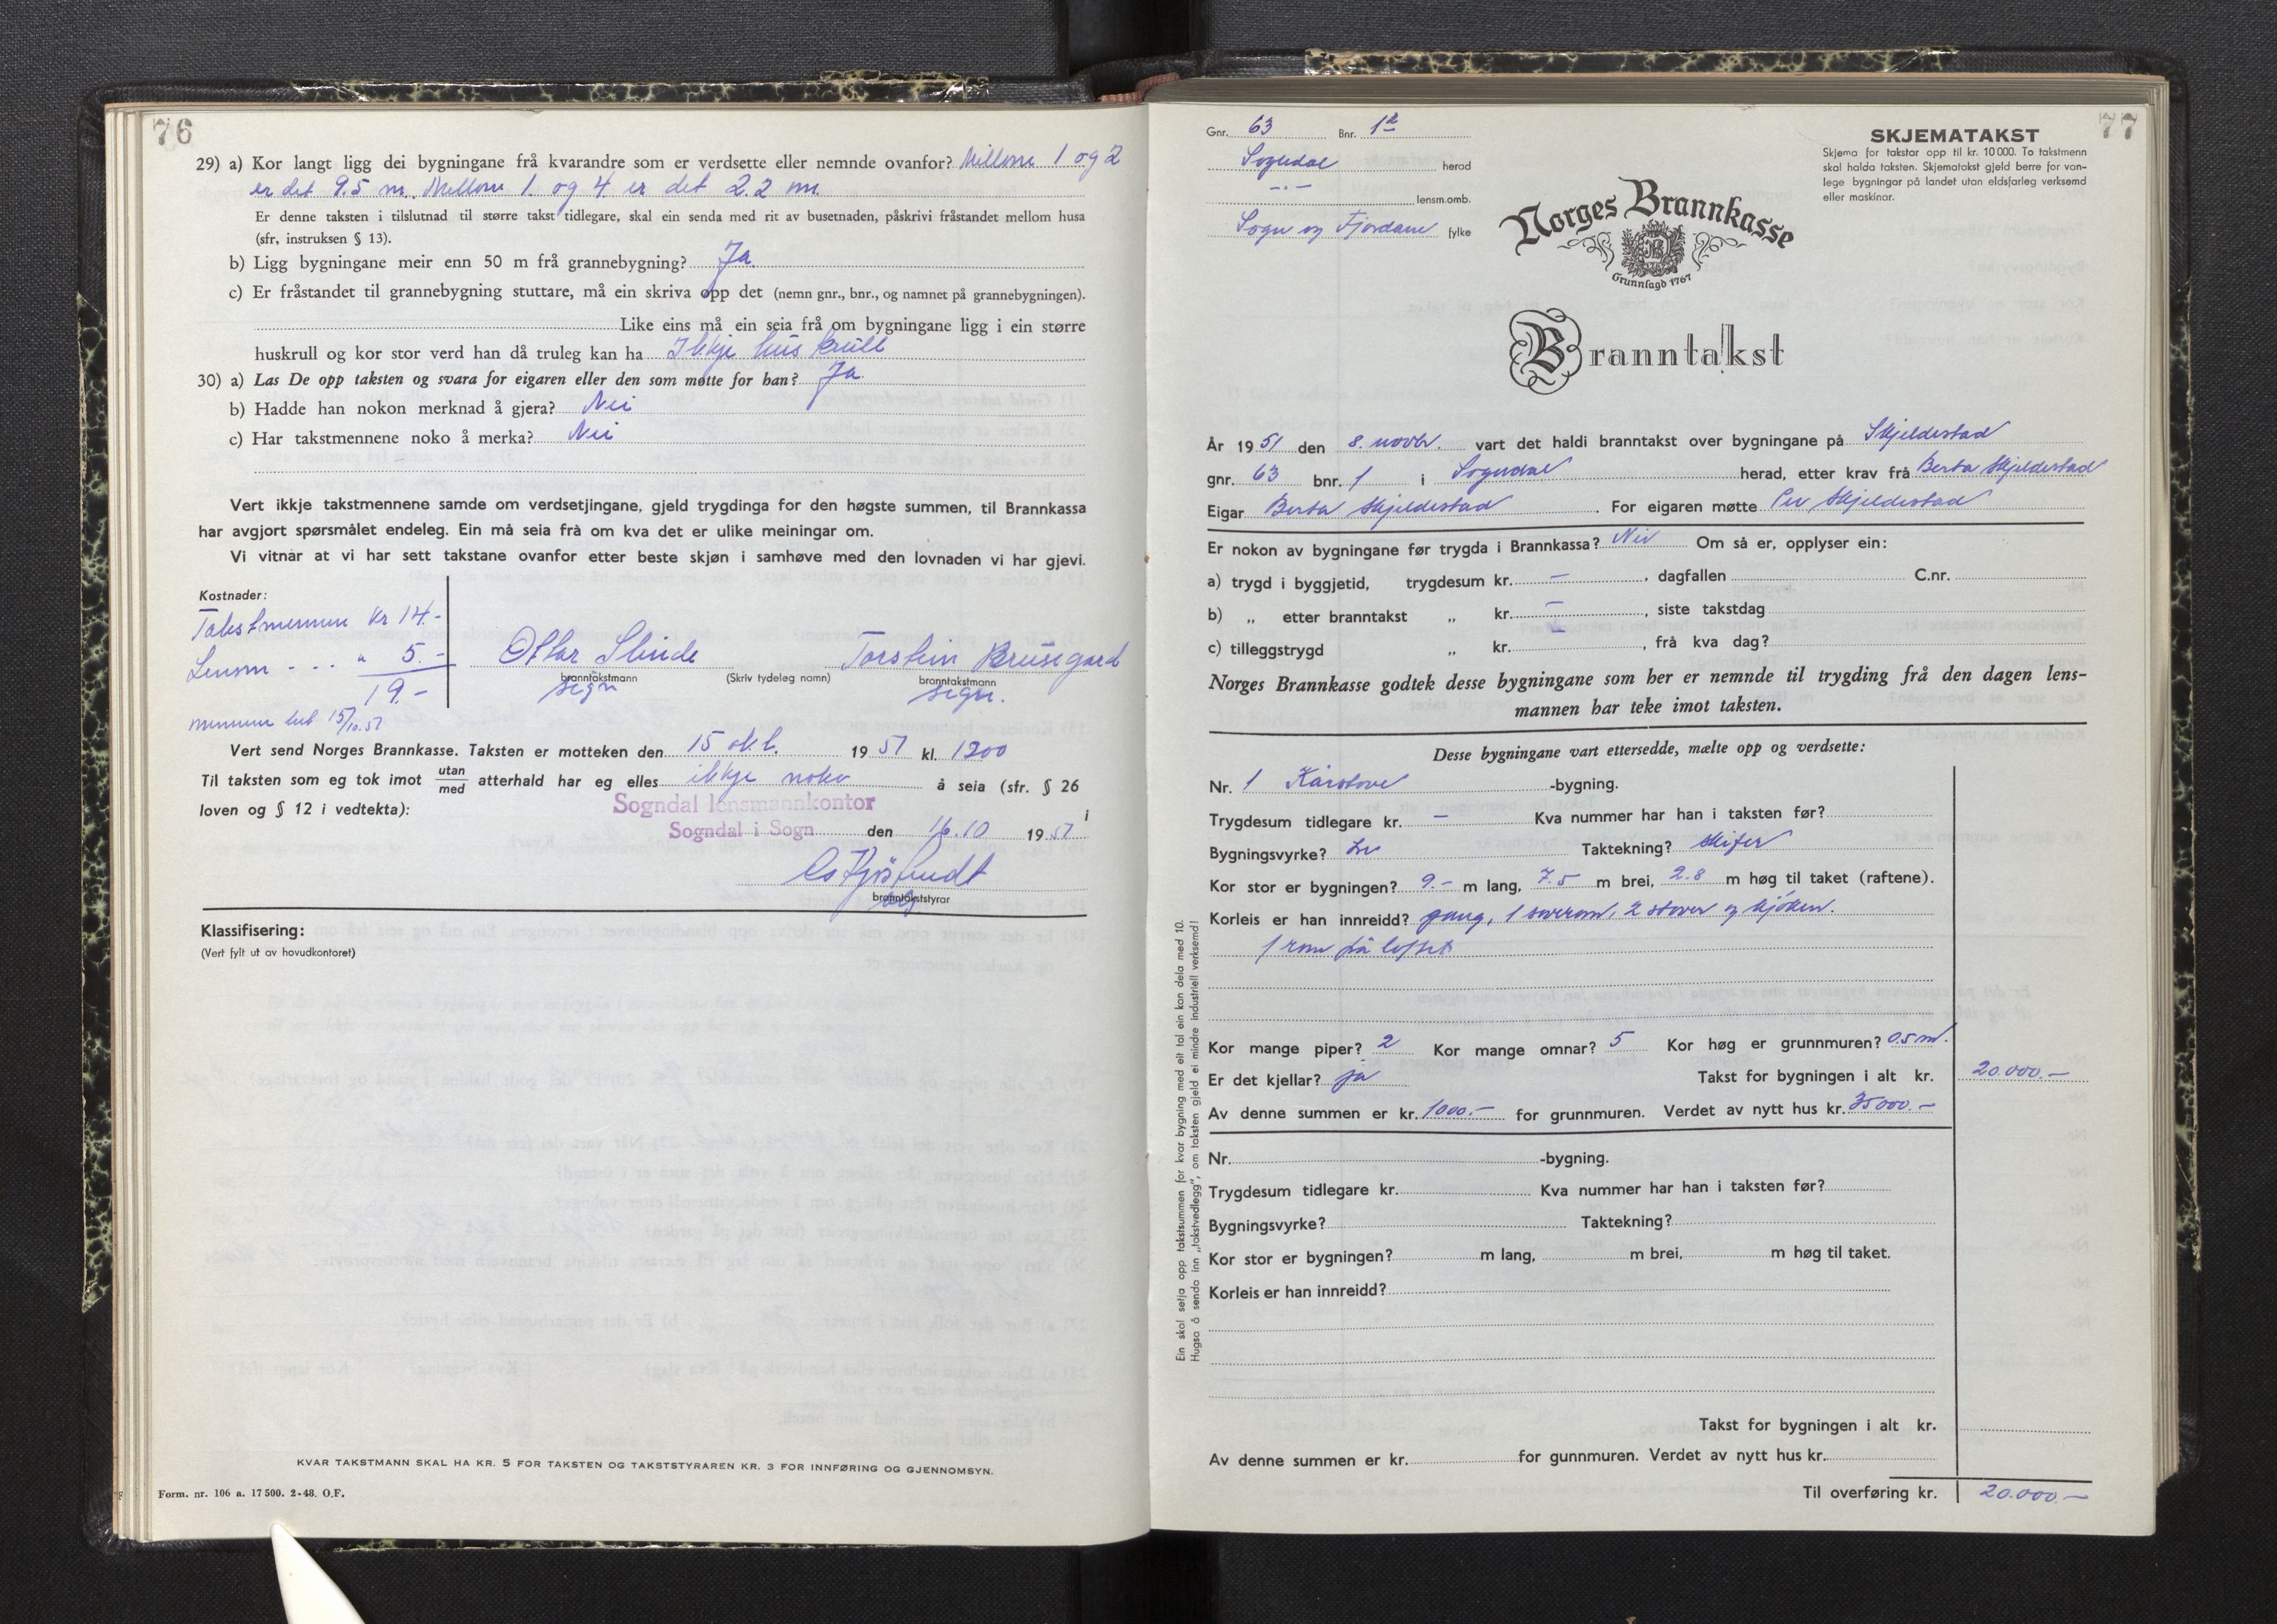 76
29) a) Kor langt ligg dei bygningane frå kvarandre som er verdsette eller nemnde ovanfor? Millom 1 og 2
er det 9.5 m. Mellom 1. og 4 er det 2.2 m.
Er denne taksten i tilslutnad til større takst tidlegare, skal ein senda med rit av busetnaden, påskrivi fråstandet mellom husa
(sfr. instruksen § 13).
b) Ligg bygningane meir enn 50 m frå grannebygning? Ja.
c) Er fråstandet til grannebygning stuttare, må ein skriva opp det (nemn gnr., bnr., og namnet på grannebygningen).
Like eins må ein seia frå om bygningane ligg i ein større
huskrull og kor stor verd han då truleg kan ha Ikkje huskrull
30) a) Las De opp taksten og svara for eigaren eller den som møtte for han? Ja.
b) Hadde han nokon merknad å gjera? Nei
c) Har takstmennene noko å merka? Nei
Vert ikkje takstmennene samde om verdsetjingane, gjeld trygdinga for den høgste summen, til Brannkassa
har avgjort spørsmålet endeleg. Ein må seia frå om kva det er ulike meiningar om.
Vi vitnar at vi har sett takstane ovanfor etter beste skjøn i samhøve med den lovnaden vi har gjevi.
Kostnader:
Takstmennene kr 14.-
Lensm - . . . " 5.-
19.-
mennene bet 15/10.51
Ottar Slinde Torstein Brusegard
branntakstmann (Skriv tydeleg namn) branntakstmann
sign sign.
Vert send Norges Brannkasse. Taksten er motteken den 15 okt. 1951 kl. 1200
Til taksten som eg tok imot utan/med atterhald har eg elles ikkje noko å seia (sfr. § 26
loven og § 12 i vedtekta): i
Sogndal lensmannkontor
Sogndal i Sogn den 16.10 1951
branntakststyrar
Klassifisering:
(Vert fylt ut av hovudkontoret)
KVAR TAKSTMANN SKAL HA KR. 5 FOR TAKSTEN OG TAKSTSTYRAREN KR. 3 FOR INNFØRING OG GJENNOMSYN.
Form. nr. 106 a. 17 500. 2-48. O.F.
77
Gnr. 63 Bnr. 12
Sogndal herad
-.- lensm.omb.
Sogn og Fjordane fylke
SKJEMATAKST
Skjema for takstar opp til kr. 10 000. To takstmenn
skal halda taksten. Skjematakst gjeld berre for van-
lege bygningar på landet utan eldsfarleg verksemd
eller maskinar.
Norges Brannkasse
Grunnlagd 1767
Branntakst
År 1951 den 8. novbr. vart det haldi branntakst over bygningane på Skjeldestad
gnr. 63 bnr. 1 i Sogndal herad, etter krav frå Berta Skjeldestad
Eigar Berta Skjeldestad. For eigaren møtte Per Skjeldestad
Er nokon av bygningane før trygda i Brannkassa? Nei Om så er, opplyser ein:
a) trygd i byggjetid, trygdesum kr. –, dagfallen C.nr.
b) „ etter branntakst „ kr. –, siste takstdag
c) tilleggstrygd „ kr. –, frå kva dag?
Norges Brannkasse godtek desse bygningane som her er nemnde til trygding frå den dagen lens-
mannen har teke imot taksten.
Desse bygningane vart ettersedde, mælte opp og verdsette:
Nr. 1 Kårstove -bygning.
Trygdesum tidlegare kr. – Kva nummer har han i taksten før?
Bygningsvyrke? Tre Taktekning? skifer
Kor stor er bygningen? 9.- m lang, 7.5 m brei, 2.8 m høg til taket (raftene).
Korleis er han innreidd? gang, 1 soverom, 2 stover og kjøken.
1 rom på loftet
Kor mange piper? 2 Kor mange omnar? 5 Kor høg er grunnmuren? 0.5 m.
Er det kjellar? ja Takst for bygningen i alt kr. 20.000.–
Av denne summen er kr. 1000.– for grunnmuren. Verdet av nytt hus kr. 35000.–
Nr. -bygning.
Trygdesum tidlegare kr. Kva nummer har han i taksten før?
Bygningsvyrke? Taktekning?
Kor stor er bygningen? m lang, m brei, m høg til taket.
Korleis er han innreidd?
Takst for bygningen i alt kr.
Av denne summen er kr. for gunnmuren. Verdet av nytt hus kr.
Til overføring kr. 20.000.–
Ein skal setja opp takstsummen for kvar bygning med eit tal ein kan dela med 10.
Hugsa å senda inn „takstvedlegg", om taksten gjeld ei mindre industriell verksemd!